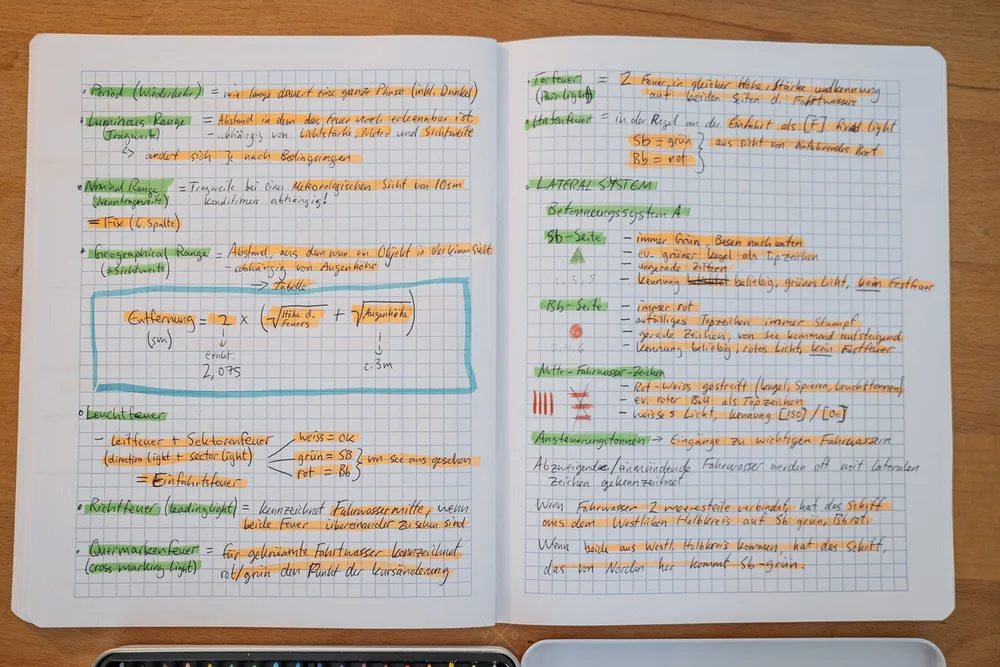 • Period (Wiederkehr) = wie lange dauert eine ganze Phase (inkl. Dunkel)
• Luminous Range = Abstand in dem das Feuer noch erkennbar ist.
(Tragweite) - abhängig von Lichtstärke Nitre und Sichtweite
↳ ändert sich je nach Bedingungen
• Nominal Range = Tragweite bei einer Meteorologischen Sicht von 10sm
(Nenntragweite) konditionen abhängig!
= Fix (6. Spalte)
• Geographical Range = Abstand, aus dem man ein Objekt in der Kimm sieht
(= Sichtweite) - abhängig von Augenhöhe
→ Tabelle
Entfernung = 2 × (√Höhe d. Feuers + √Augenhöhe)
(sm)
exakt: c. 3m
2,075
• Leuchtfeuer
- Leitfeuer + Sektorenfeuer
(direction light + sector light)
= Einfahrtsfeuer
weiss = OK
grün = SB
rot = Bb
von see aus gesehen
• Richtfeuer (leading light) = kennzeichnet Fahrwassermitte, wenn
beide Feuer übereinander zu sehen sind
• Quermarkenfeuer = für gekrümmte Fahrtwasser kennzeichnet
(cross marking light) rot/grün den Punkt der Kursänderung
• Torfeuer = 2 Feuer in gleicher Höhe, Stärke und kennung
(Pair light) auf beiden Seiten d. Fahrtwassers
• Hafenfeuer = in der Regel an der Einfahrt als [F] fixed light
Sb = grün
Bb = rot
aus sicht von einfahrendes Boot
• LATERAL SYSTEM
Betonnungssystem A
Sb-Seite - immer Grün, Besen nach unten
- ev. grüner Kegel als Topzeichen
- ungerade Ziffern
1, 3, 5 - Kennung beliebig, grünes Licht, kein Festfeuer
Bb-Seite - immer rot
- aufälliges Topzeichen immer Stumpf
- gerade Zeichen, von See kommend aufsteigend
2, 4, 6 - kennung beliebig, rotes Licht, kein Festfeuer
Mitte-Fahrwasser-Zeichen
- Rot-Weiss gestreift (kugel, Spieren, Leuchttonnen)
- ev. roter Ball als Topzeichen
- weisses Licht, kennung [ISO] / [Oc]
Ansteuerungstonnen → Eingänge zu wichtigen Fahrwassern
Abzweigende/einmündende Fahrwasser werden oft mit lateralen
Zeichen gekennzeichnet
Wenn Fahrwasser 2 meeresteile verbindet, hat das Schiff
aus dem Westlichen Halbkreis auf Sb grün, Bb rot.
Wenn beide aus Westl. Halbkreis kommen, hat das Schiff,
das von Norden her kommt Sb-grün.